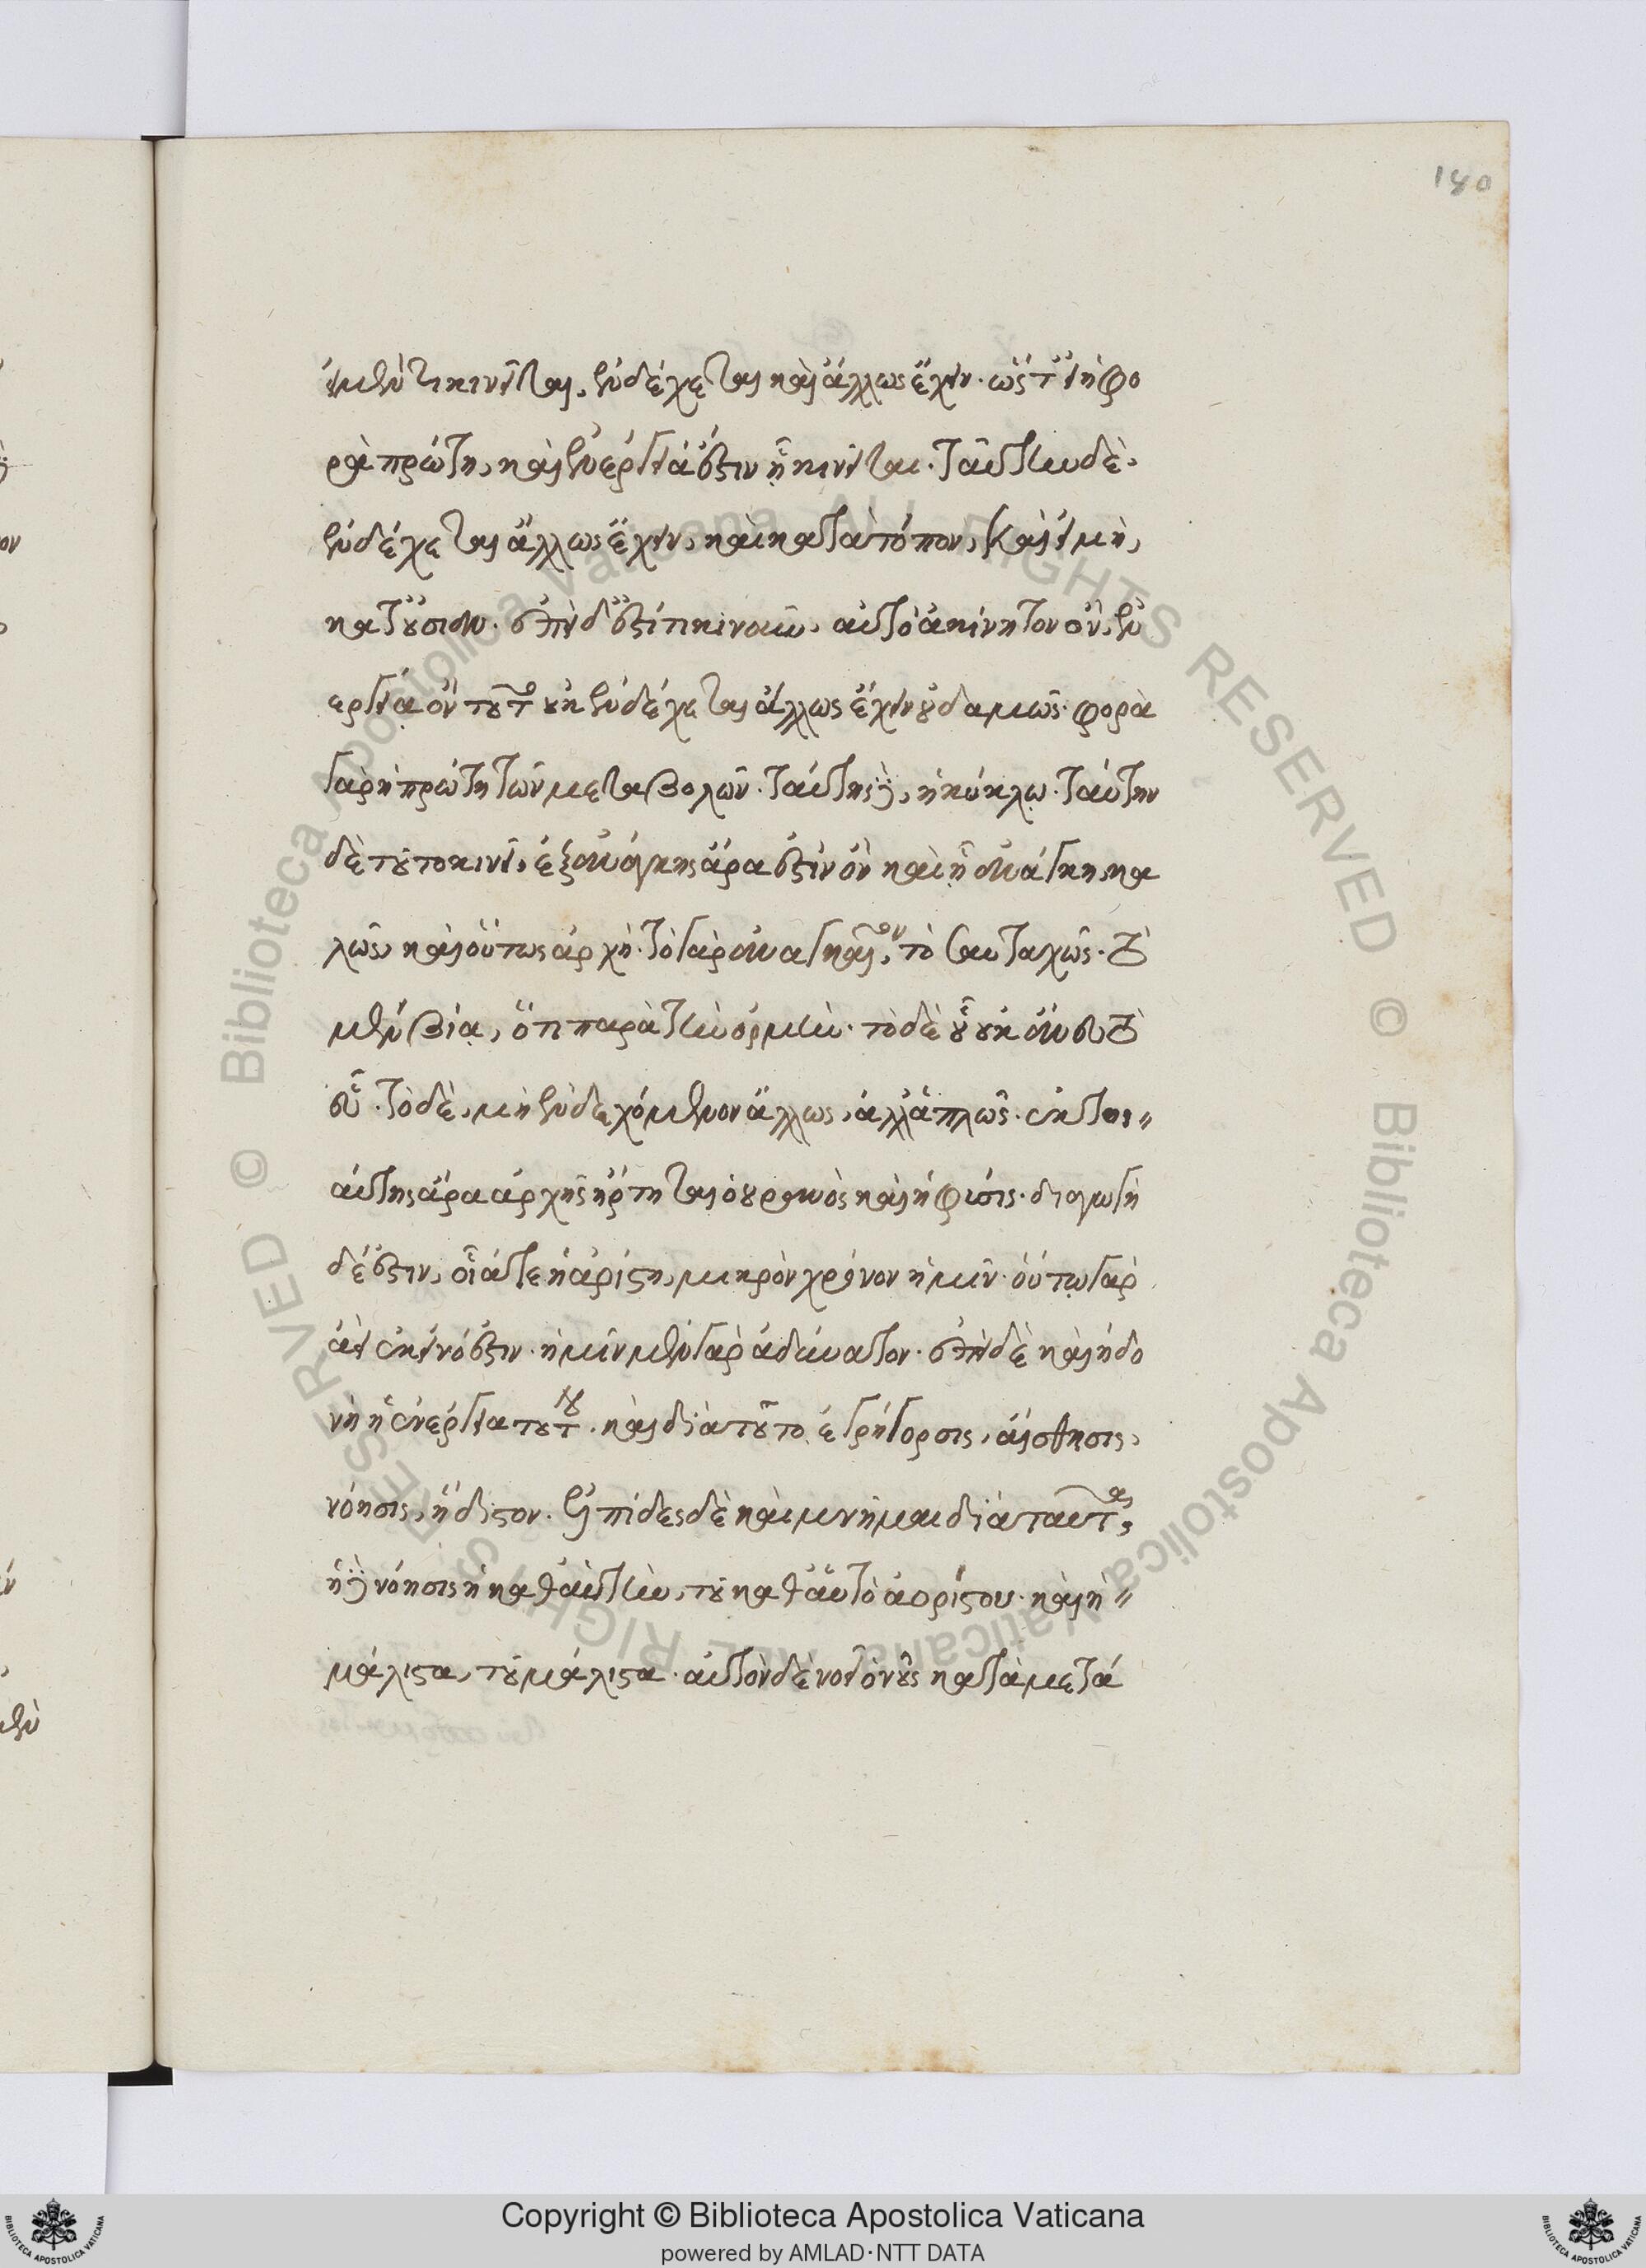 180
εἰ μὲν τι κινεῖται, ἐνδέχεται καὶ ἄλλως ἔχειν. ὥστ' εἰ ἡ φο
ρὰ πρώτη, καὶ ἐνέργειά ἐστιν ᾗ κινεῖται. ταύτην δὲ
ἐνδέχεται ἄλλως ἔχειν, καὶ κατὰ τόπον, καὶ εἰ μὴ,
κατ' οὐσίαν. ἐπεὶ δ' ἔστί τι κινοῦν, αὐτὸ ἀκίνητον ὂν, ἐν
εργείᾳ ὂν τοῦτο οὐκ ἐνδέχεται ἄλλως ἔχειν οὐδαμῶς. φορὰ
γὰρ ἡ πρώτη τῶν μεταβολῶν. ταύτης δὲ, ἡ κύκλῳ. ταύτην
δὲ τοῦτο κινεῖ, ἐξ ἀνάγκης ἄρα ἐστὶν ὂν καὶ ᾗ ἀνάγκη, κα
λῶς, καὶ οὕτως ἀρχή. τὸ γὰρ ἀναγκαῖον, τοσαυταχῶς. τὸ
μὲν βίᾳ, ὅτι παρὰ τὴν ὁρμήν. τὸ δὲ οὗ οὐκ ἄνευ τὸ
εὖ. τὸ δὲ, μὴ ἐνδεχόμενον ἄλλως, ἀλλ' ἁπλῶς. ἐκ τοι
αύτης ἄρα ἀρχῆς ἤρτηται ὁ οὐρανὸς καὶ ἡ φύσις. διαγωγὴ
δέ ἐστιν, οἵα τε ἡ ἀρίστη, μικρὸν χρόνον ἡμῖν. οὕτω γὰρ
ἀεὶ ἐκεῖνό ἐστιν. ἡμῖν μὲν γὰρ ἀδύνατον. ἐπεὶ δὲ καὶ ἡδο
νὴ ἡ ἐνέργεια τούτου. καὶ διὰ τοῦτο ἐγρήγορσις, αἴσθησις,
νόησις, ἥδιστον. ἐλπίδες δὲ καὶ μνῆμαι διὰ ταῦτα,
ἡ δὲ νόησις ἡ καθ' αὑτὴν, τοῦ καθ' αὑτὸ ἀορίστου. καὶ ἡ
μάλιστα, τοῦ μάλιστα. αὐτὸν δὲ νοεῖ ὁ νοῦς κατὰ μετά
Copyright © Biblioteca Apostolica Vaticana
powered by AMLAD·NTT DATA